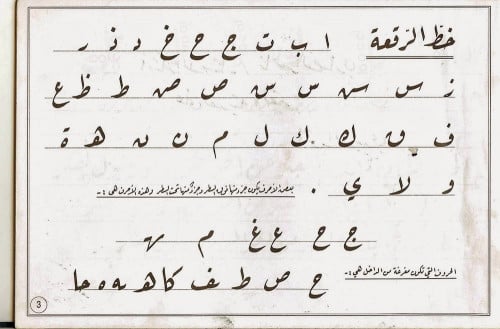 خط الرقعة ا ب ت ج ح خ د ذ ر
ز س س س س ص ص ط ظ ع
ف ق ك ك ل م ن ن هـ ة
و لا ي .
بعض الأحرف يكون جزء منها فوق السطر وجزء منها تحت السطر وهذه الأحرف هي :-
ج ح ع غ م
الحروف التي تكون مفرغة من الداخل هي :-
ح ص ط ف كا هـ
3